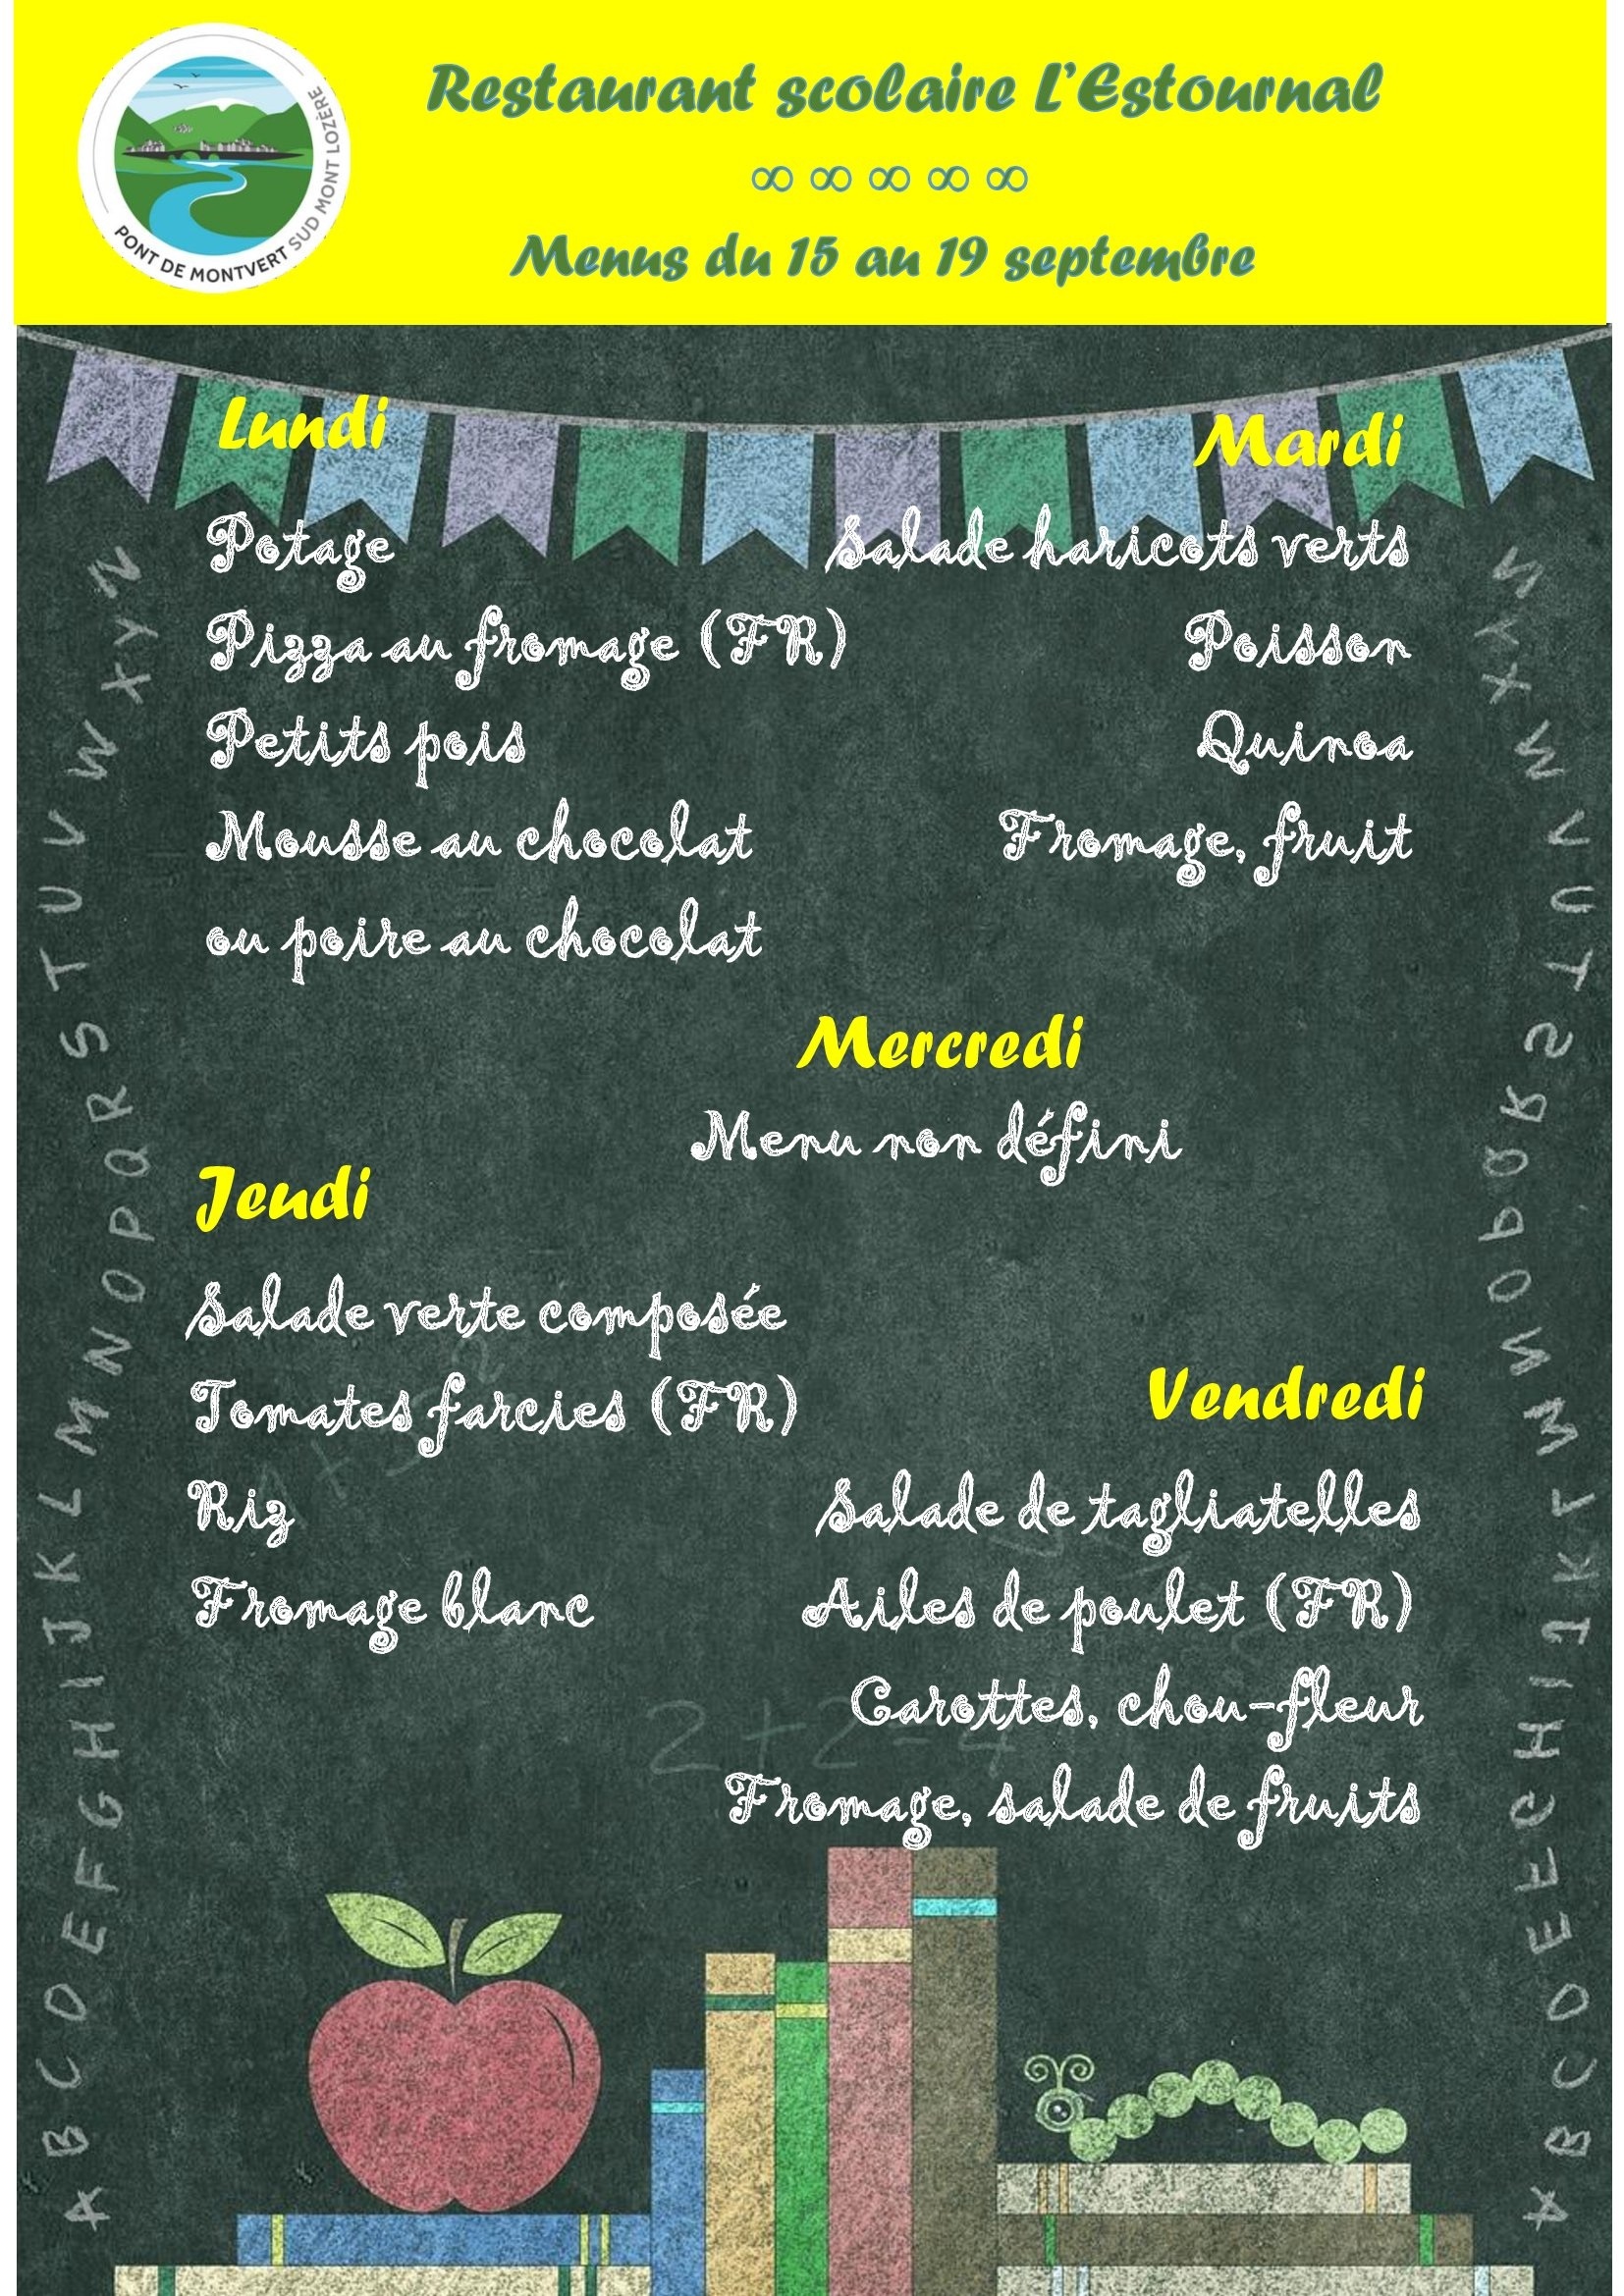 PONT DE MONTVERT SUD MONT LOZÈRE
Restaurant scolaire L'Estournal
∞ ∞ ∞ ∞ ∞
Menus du 15 au 19 septembre
Lundi
Potage
Pizza au fromage (FR)
Petits pois
Mousse au chocolat
ou poire au chocolat
Mardi
Salade haricots verts
Poisson
Quinoa
Fromage, fruit
Mercredi
Menu non défini
Jeudi
Salade verte composée
Tomates farcies (FR)
Riz
Fromage blanc
Vendredi
Salade de tagliatelles
Ailes de poulet (FR)
Carottes, chou-fleur
Fromage, salade de fruits
2+2=4